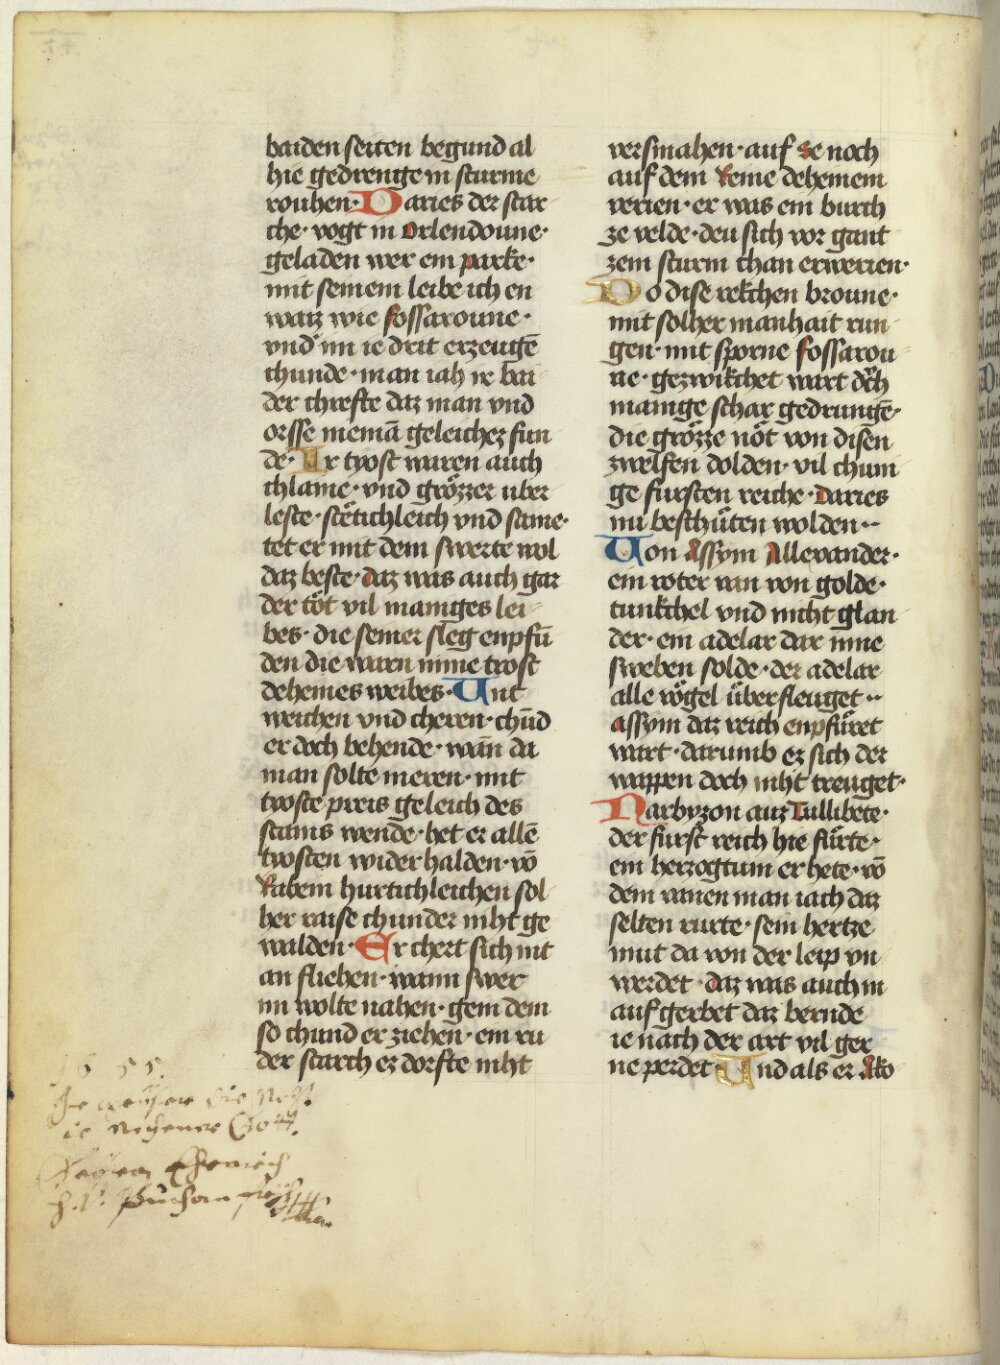 baiden seitten begund al
hie gedrenge in sturme
rouhen · Daries der star
che · vogt in Orlendoune ·
geladen wer ein parke ·
mit seinem leibe ich en
waiz wie fossaroune ·
vnd im ie drit erzeugē
chunde · man iah ir bai
der chrefte daz man vnd
orsse niemā geleichez fun
de · Ir trost waren auch
chlaine · vnd grözzer uber
leste · stëtichleich vnd saine ·
tet er mit dem swerte wol
daz beste · daz was auch gar
der tôt vil maniges lei
bes · die seiner sleg enpfū
den die warn inme trost
deheines weibes · Unt
weichen vnd cheren · chūd
er doch behende · wan da
man solte meren · mit
troste preis geleich des
stams wende · het er allē
trosten wider halden · vō
Rabein hurtichleichen sol
her raise chunder niht ge
walden · Er chert sich nit
an fliehen · wann swer
im wolte nahen · gein dem
so chund er ziehen · ein ru
der starch ez dorfte niht
versmahen · auf se noch
auf dem Reine deheinem
verien · er was ein burch
ze velde · deu sich vor gant
zem sturm chan erwerien ·
Do dise rekchen broune ·
mit solher manhait run
gen · mit sporne fossarou
ne · gezwikchet wart doch
manige schar gedrungē ·
die grözze nöt von disen
zwelfen dolden · vil chuni
ge fursten reiche · Daries
nu beschüten wolden ··
Von Assym Allexander ·
ein roter van von golde ·
tunkchel vnd nicht glan
der · ein adelar dar inne
sweben solde · der adelar
alle vögel überfleuget ··
Assym daz reich enpfüret
wart · darumb ez sich der
wappen doch niht treuget ·
Narbyzon auz Tullibete ·
der furst reich hie fürte ·
ein herzogtum er hete · vō
dem vanen man iach daz
selten rurte · sein hertze
mut da von der leip vn
werdet · daz was auch in
auf gerbet daz bernde
ie nach der art vil ger
ne perdet Und als er Ako